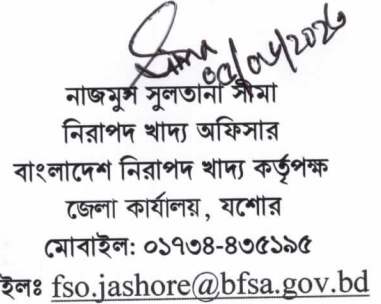 নাজমুস সুলতানা সীমা
নিরাপদ খাদ্য অফিসার
বাংলাদেশ নিরাপদ খাদ্য কর্তৃপক্ষ
জেলা কার্যালয়, যশোর
মোবাইল: ০১৭৩৪-৪৩৫১৯৫
ইলঃ fso.jashore@bfsa.gov.bd